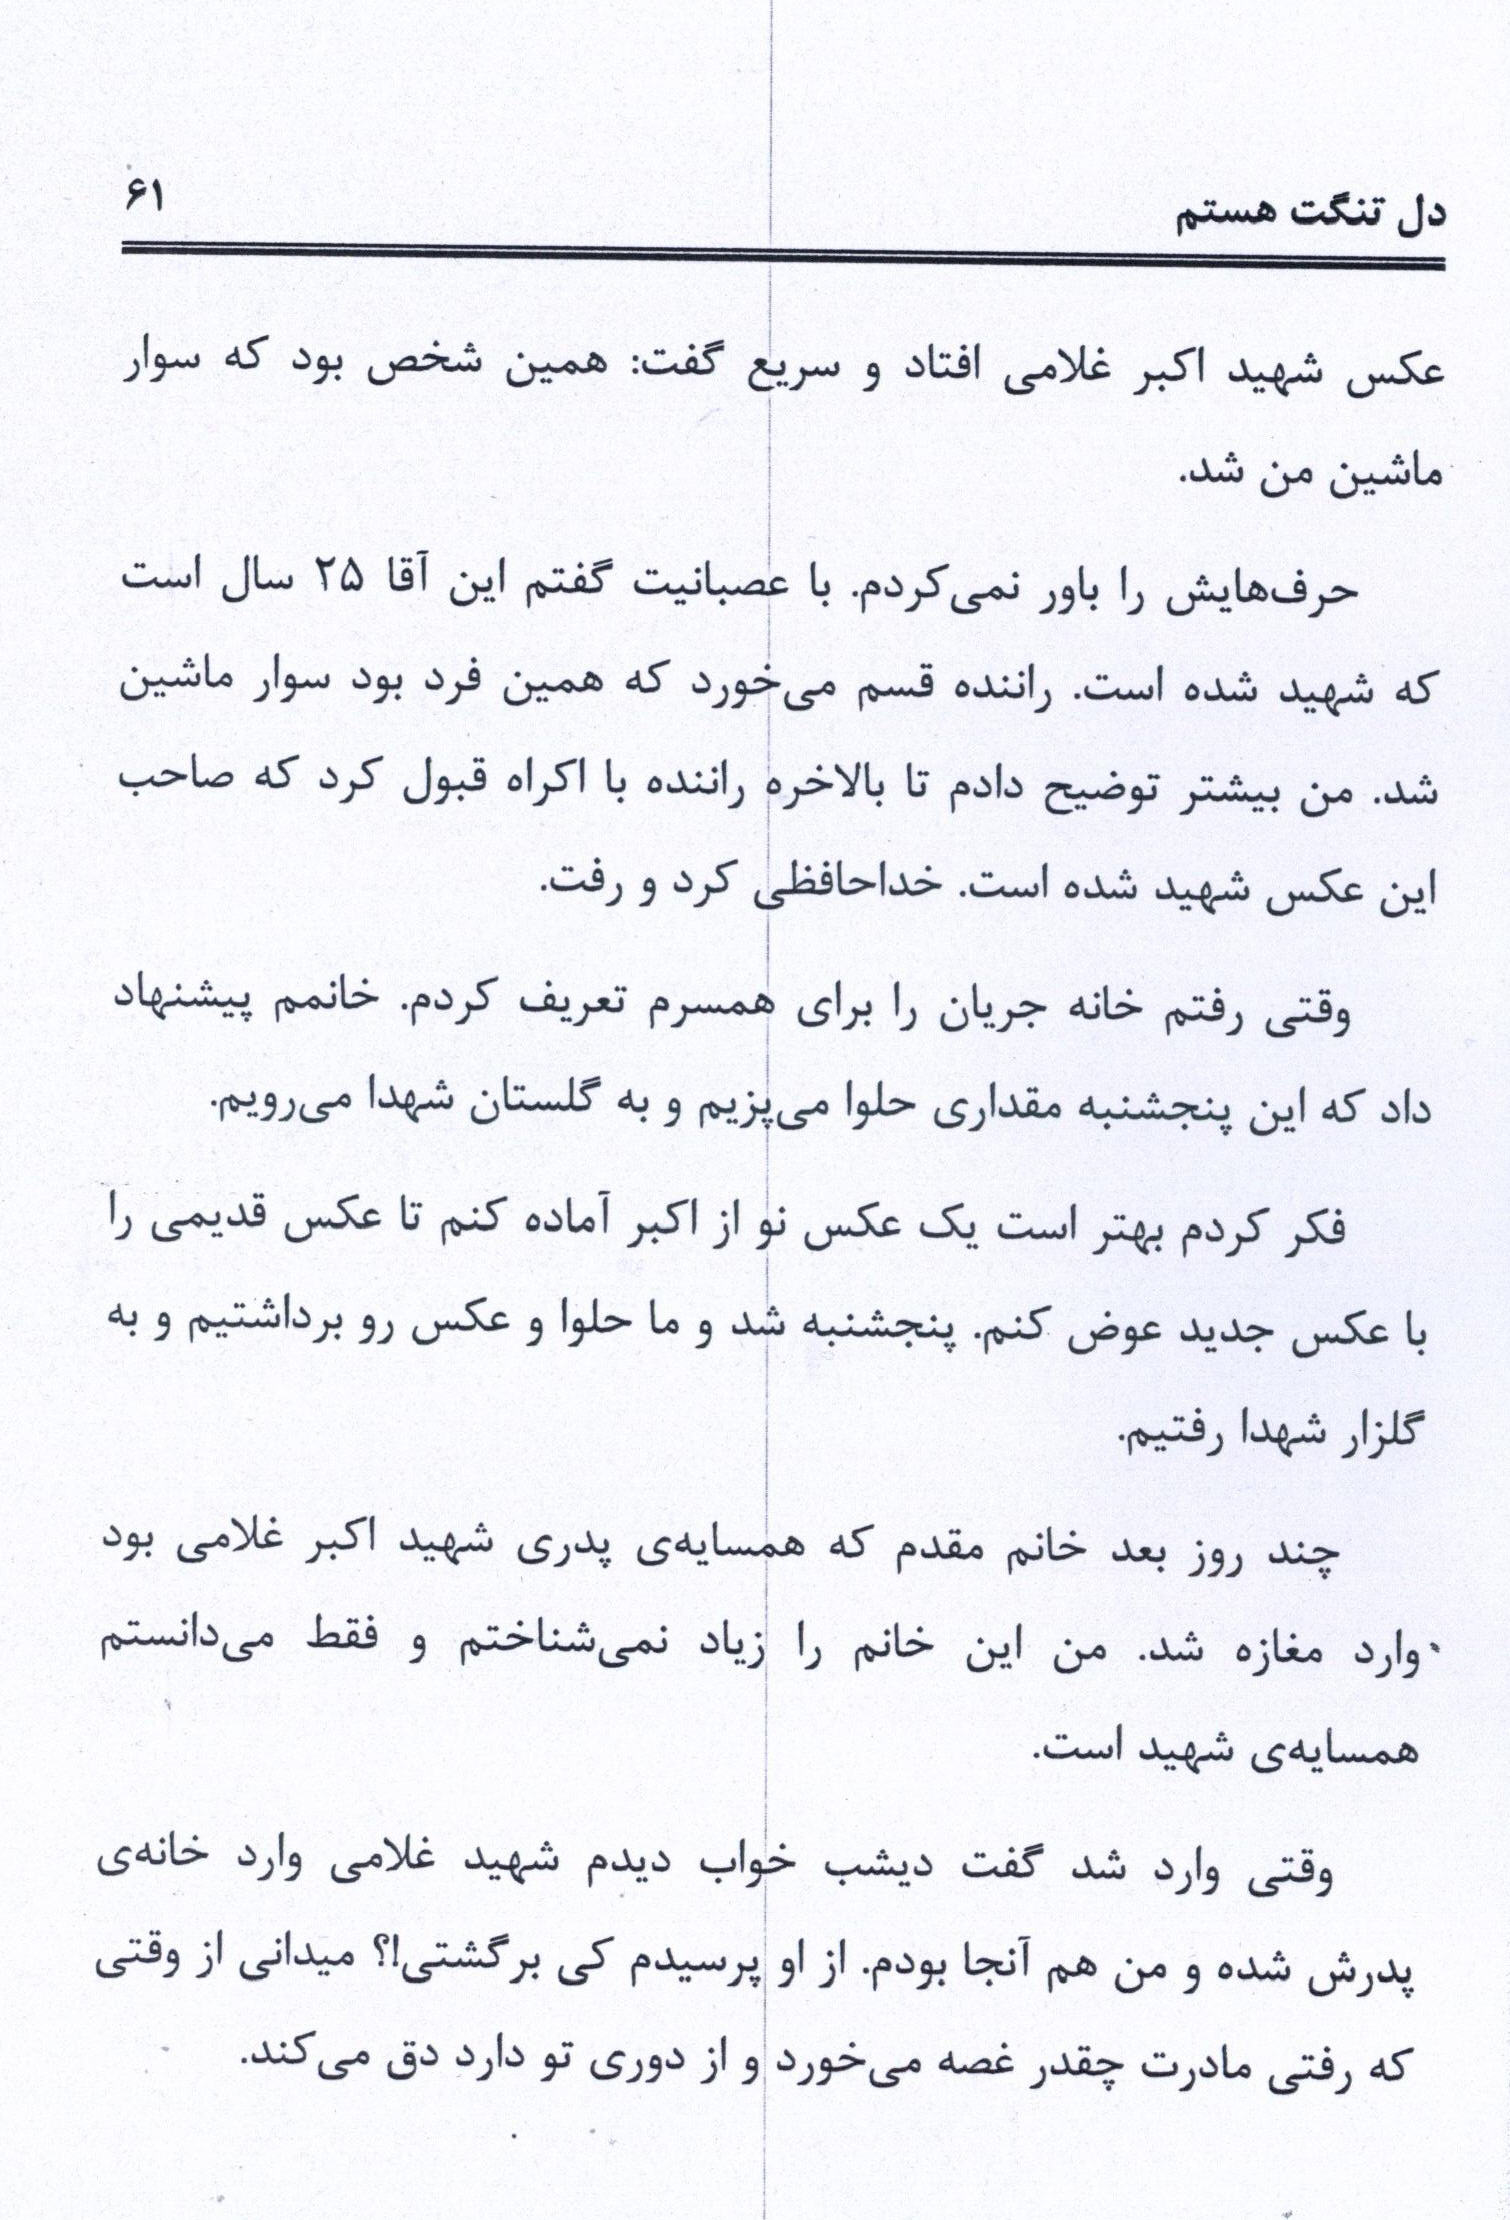 دل تنگت هستم ۶۱
عکس شهید اکبر غلامی افتاد و سریع گفت: همین شخص بود که سوار
ماشین من شد.
حرف‌هایش را باور نمی‌کردم. با عصبانیت گفتم این آقا ۲۵ سال است
که شهید شده است. راننده قسم می‌خورد که همین فرد بود سوار ماشین
شد. من بیشتر توضیح دادم تا بالاخره راننده با اکراه قبول کرد که صاحب
این عکس شهید شده است. خداحافظی کرد و رفت.
وقتی رفتم خانه جریان را برای همسرم تعریف کردم. خانمم پیشنهاد
داد که این پنجشنبه مقداری حلوا می‌پزیم و به گلستان شهدا می‌رویم.
فکر کردم بهتر است یک عکس نو از اکبر آماده کنم تا عکس قدیمی را
با عکس جدید عوض کنم. پنجشنبه شد و ما حلوا و عکس رو برداشتیم و به
گلزار شهدا رفتیم.
چند روز بعد خانم مقدم که همسایه‌ی پدری شهید اکبر غلامی بود
وارد مغازه شد. من این خانم را زیاد نمی‌شناختم و فقط می‌دانستم
همسایه‌ی شهید است.
وقتی وارد شد گفت دیشب خواب دیدم شهید غلامی وارد خانه‌ی
پدرش شده و من هم آنجا بودم. از او پرسیدم کی برگشتی!؟ میدانی از وقتی
که رفتی مادرت چقدر غصه می‌خورد و از دوری تو دارد دق می‌کند.